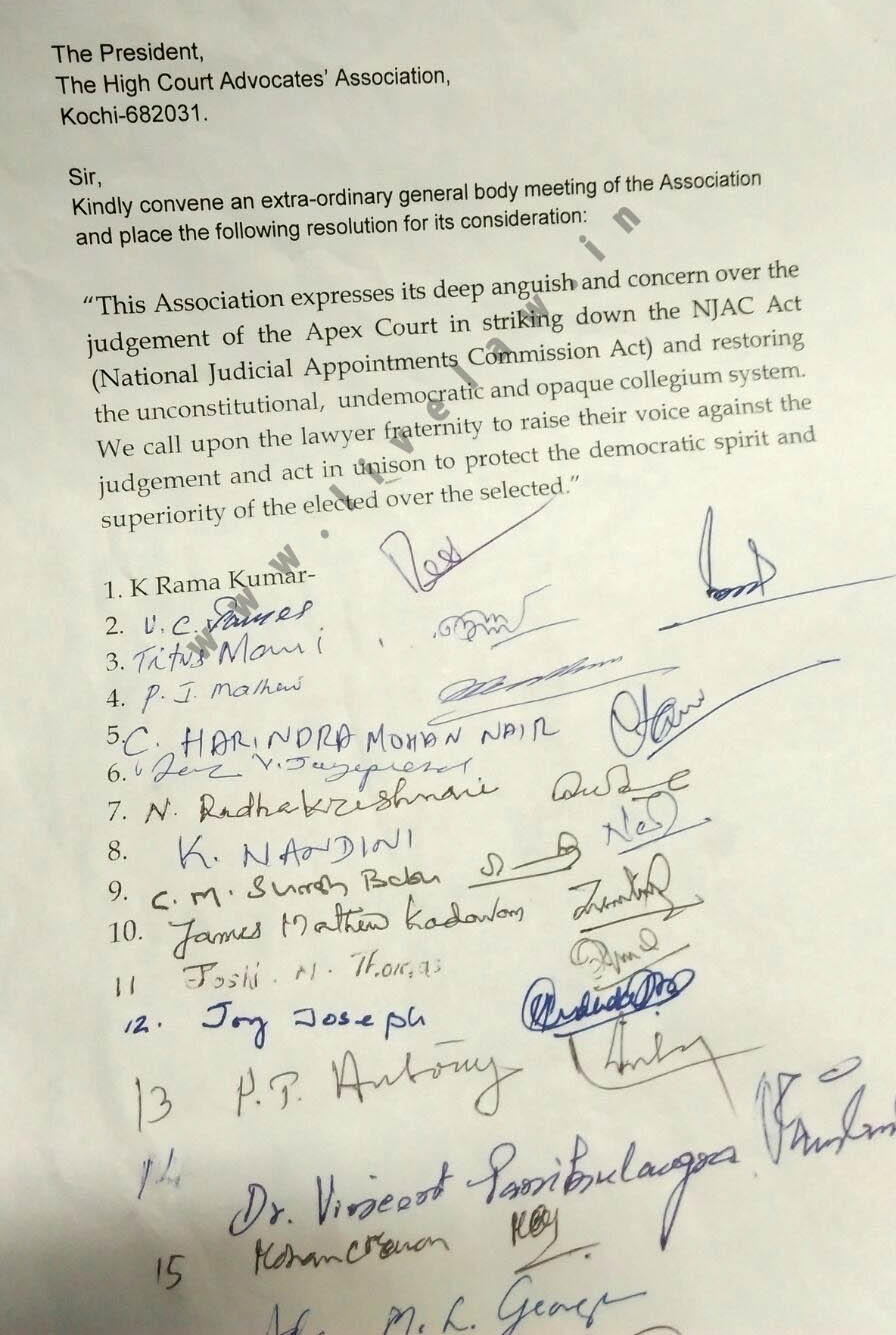 The President,
The High Court Advocates' Association,
Kochi-682031.
Sir,
Kindly convene an extra-ordinary general body meeting of the Association
and place the following resolution for its consideration:
"This Association expresses its deep anguish and concern over the
judgement of the Apex Court in striking down the NJAC Act
(National Judicial Appointments Commission Act) and restoring
the unconstitutional, undemocratic and opaque collegium system.
We call upon the lawyer fraternity to raise their voice against the
judgement and act in unison to protect the democratic spirit and
superiority of the elected over the selected."
www.livelaw.in
1. K Rama Kumar-
2. V. C. James
3. Titus Mani
4. P. J. Mathew
5. C. HARINDRA MOHAN NAIR
6. V. Jayaprasad
7. N. Radhakrishnan
8. K. NANDINI
9. C. M. Suresh Babu
10. James Mathew Kadavan
11 Joshi N. Thomas
12. Joy Joseph
13 P. Antony
14
Dr. Vincent
15 Mohan C Menon
M. L. George